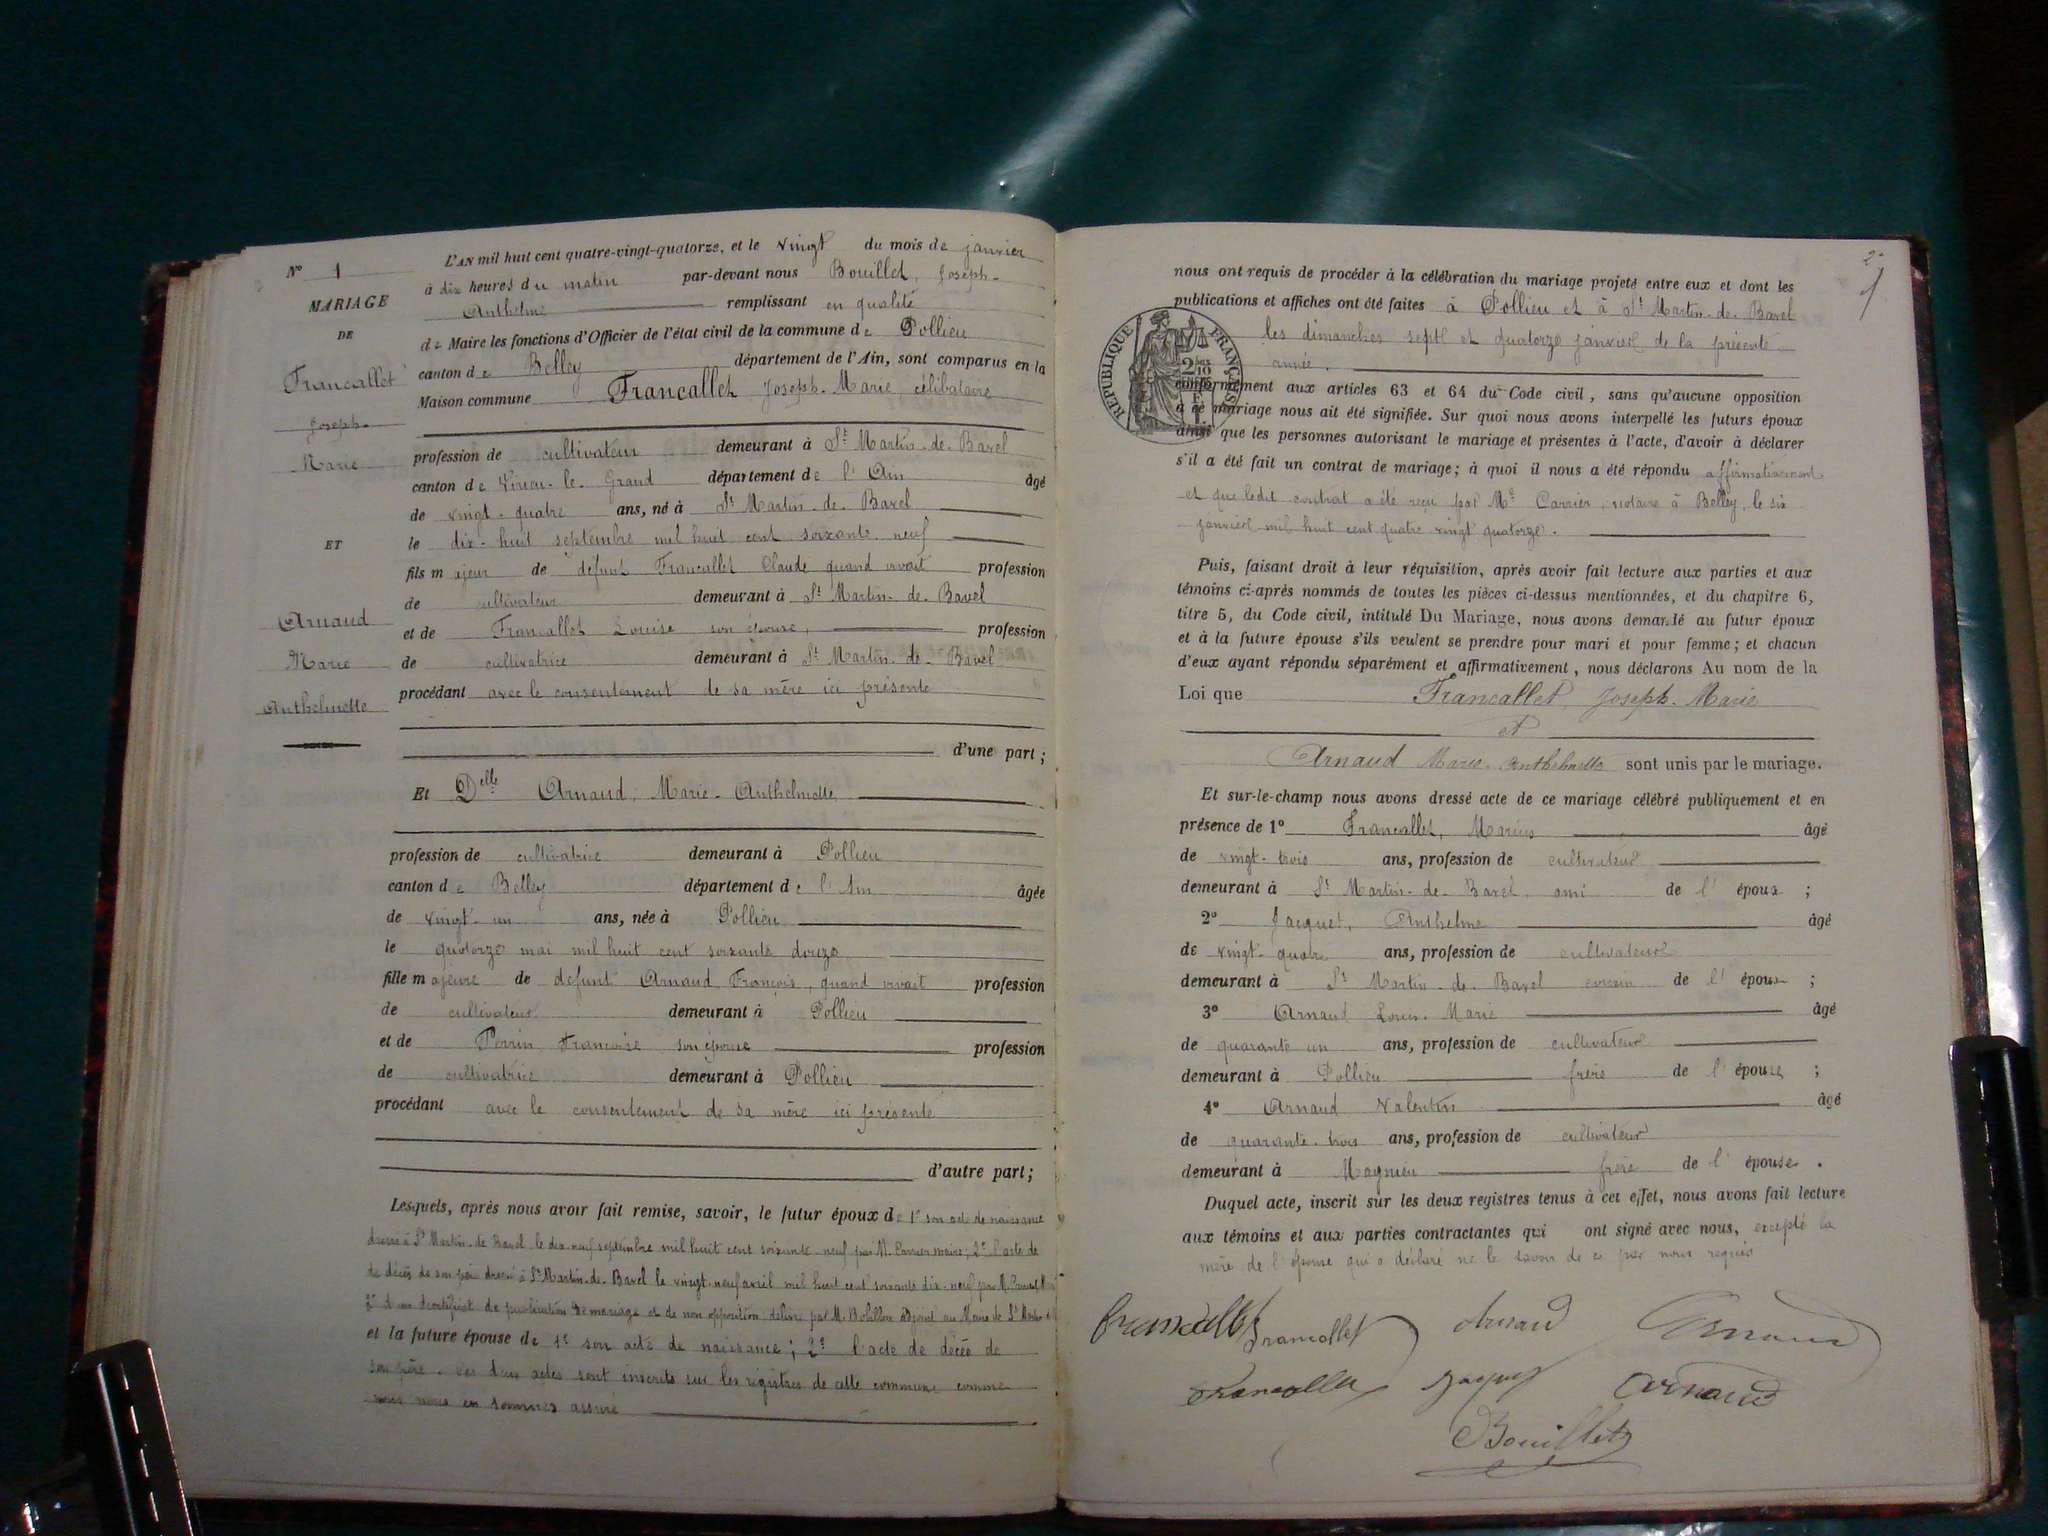 N° 1
MARIAGE
DE
Francallet
Joseph-
Marie
ET
Arnaud
Marie
Anthelmette
L'AN mil huit cent quatre-vingt-quatorze, et le vingt du mois de janvier
à dix heures du matin par-devant nous Bouillet, Joseph-
Anthelme remplissant en qualité
de Maire les fonctions d'Officier de l'état civil de la commune de Pollieu
canton de Belley département de l'Ain, sont comparus en la
Maison commune Francallet Joseph-Marie, célibataire
profession de cultivateur demeurant à St Martin-de-Bavel
canton de Virieu-le-Grand département de l'Ain âgé
de vingt-quatre ans, né à St Martin-de-Bavel
le dix-huit septembre mil huit cent soixante neuf
fils majeur de défunt Francallet Claude quand vivait profession
de cultivateur demeurant à St Martin-de-Bavel
et de Francallet Louise son épouse, profession
de cultivatrice demeurant à St Martin-de-Bavel
procédant avec le consentement de sa mère ici présente
d'une part ;
Et Delle Arnaud, Marie-Anthelmette,
profession de cultivatrice demeurant à Pollieu
canton de Belley département de l'Ain âgée
de vingt-un ans, née à Pollieu
le quatorze mai mil huit cent soixante douze
fille majeure de défunt Arnaud François, quand vivait profession
de cultivateur demeurant à Pollieu
et de Perrin Françoise son épouse profession
de cultivatrice demeurant à Pollieu
procédant avec le consentement de sa mère ici présente
d'autre part ;
Lesquels, après nous avoir fait remise, savoir, le futur époux de 1° son acte de naissance
dressé à St Martin-de-Bavel le dix-neuf septembre mil huit cent soixante-neuf par M. Carrier maire; 2° l'acte de
de décès de son père dressé à St Martin-de-Bavel le vingt-neuf avril mil huit cent soixante dix-neuf par M.
3° d'un certificat de publication de mariage et de non opposition délivré par M. Bolillon adjoint au Maire de St Martin
et la future épouse de 1° son acte de naissance ; 2° l'acte de décès de
son père. Ces deux actes sont inscrits sur les registres de cette commune comme
nous nous en sommes assuré
2
nous ont requis de procéder à la célébration du mariage projeté entre eux et dont les
publications et affiches ont été faites à Pollieu et à St Martin-de-Bavel
les dimanches sept et quatorze janvier de la présente
année.
REPUBLIQUE FRANÇAISE
conformément aux articles 63 et 64 du Code civil, sans qu'aucune opposition
à ce mariage nous ait été signifiée. Sur quoi nous avons interpellé les futurs époux
ainsi que les personnes autorisant le mariage et présentes à l'acte, d'avoir à déclarer
s'il a été fait un contrat de mariage; à quoi il nous a été répondu affirmativement
et que ledit contrat a été reçu par Me Carrier, notaire à Belley, le six
janvier mil huit cent quatre vingt quatorze.
Puis, faisant droit à leur réquisition, après avoir fait lecture aux parties et aux
témoins ci-après nommés de toutes les pièces ci-dessus mentionnées, et du chapitre 6,
titre 5, du Code civil, intitulé Du Mariage, nous avons demandé au futur époux
et à la future épouse s'ils veulent se prendre pour mari et pour femme; et chacun
d'eux ayant répondu séparément et affirmativement, nous déclarons Au nom de la
Loi que Francallet, Joseph-Marie
et
Arnaud Marie-Anthelmette sont unis par le mariage.
Et sur-le-champ nous avons dressé acte de ce mariage célébré publiquement et en
présence de 1° Francallet, Marius âgé
de vingt-trois ans, profession de cultivateur
demeurant à St Martin-de-Bavel, ami de l'époux ;
2° Jacquet, Anthelme âgé
de vingt-quatre ans, profession de cultivateur
demeurant à St Martin-de-Bavel cousin de l'époux ;
3° Arnaud Louis-Marie âgé
de quarante un ans, profession de cultivateur
demeurant à Pollieu frère de l'épouse ;
4° Arnaud Valentin âgé
de quarante-trois ans, profession de cultivateur
demeurant à Magnieu frère de l'épouse.
Duquel acte, inscrit sur les deux registres tenus à cet effet, nous avons fait lecture
aux témoins et aux parties contractantes qui ont signé avec nous, excepté la
mère de l'épouse qui a déclaré ne le savoir de ce par nous requis
Francallet Francallet Arnaud Arnaud
Francallet Jacquet Arnaud
Bouillet